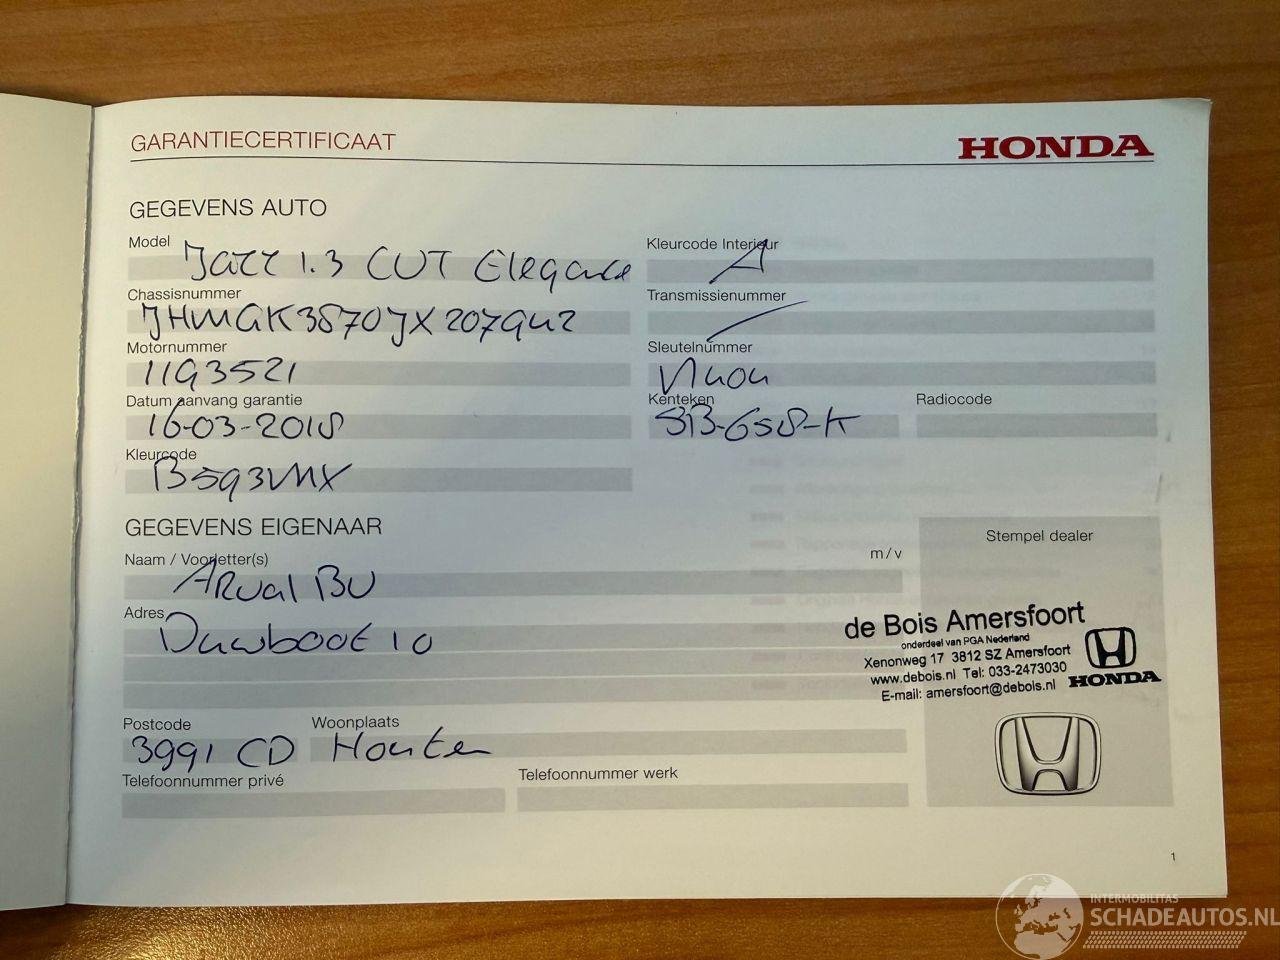 GARANTIECERTIFICAAT
HONDA
GEGEVENS AUTO
Model Jazz 1.3 CVT Elegance
Kleurcode Interieur A
Chassisnummer JHMGK3870JX207942
Transmissienummer
Motornummer 1193521
Sleutelnummer
Datum aanvang garantie 16-03-2018
Kenteken SB-658-K
Radiocode
Kleurcode B593MX
GEGEVENS EIGENAAR
Stempel dealer
Naam / Voorletter(s) Arval BV
m / v
Adres 10
de Bois Amersfoort
onderdeel van PGA Nederland
Xenonweg 17 3812 SZ Amersfoort
www.debois.nl Tel: 033-2473030
E-mail: amersfoort@debois.nl
HONDA
Postcode 3991 CD
Woonplaats Houten
Telefoonnummer privé
Telefoonnummer werk
1
INTERMOBILITAS
SCHADEAUTOS.NL